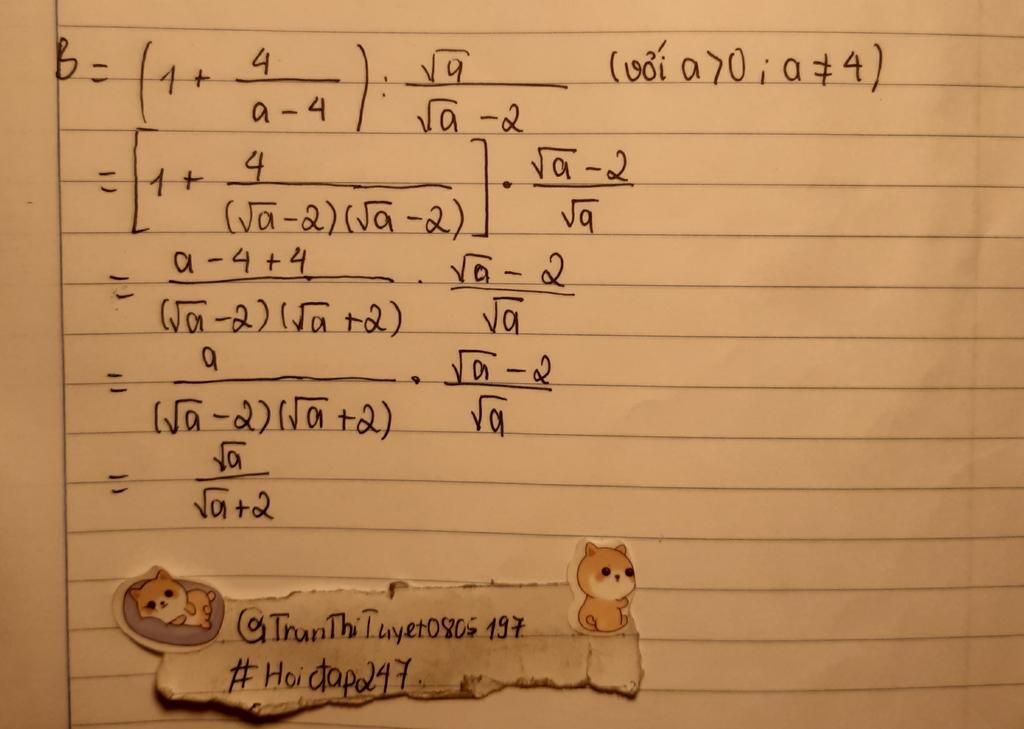 B = (1 + 4/(a - 4)) : √a/(√a - 2) (với a>0 ; a ≠ 4)
= [1 + 4/((√a - 2)(√a - 2))] . (√a - 2)/√a
= (a - 4 + 4)/((√a - 2)(√a + 2)) . (√a - 2)/√a
= a/((√a - 2)(√a + 2)) . (√a - 2)/√a
= √a/(√a + 2)
@TranThiTuyet0805197
#Hoiđap247